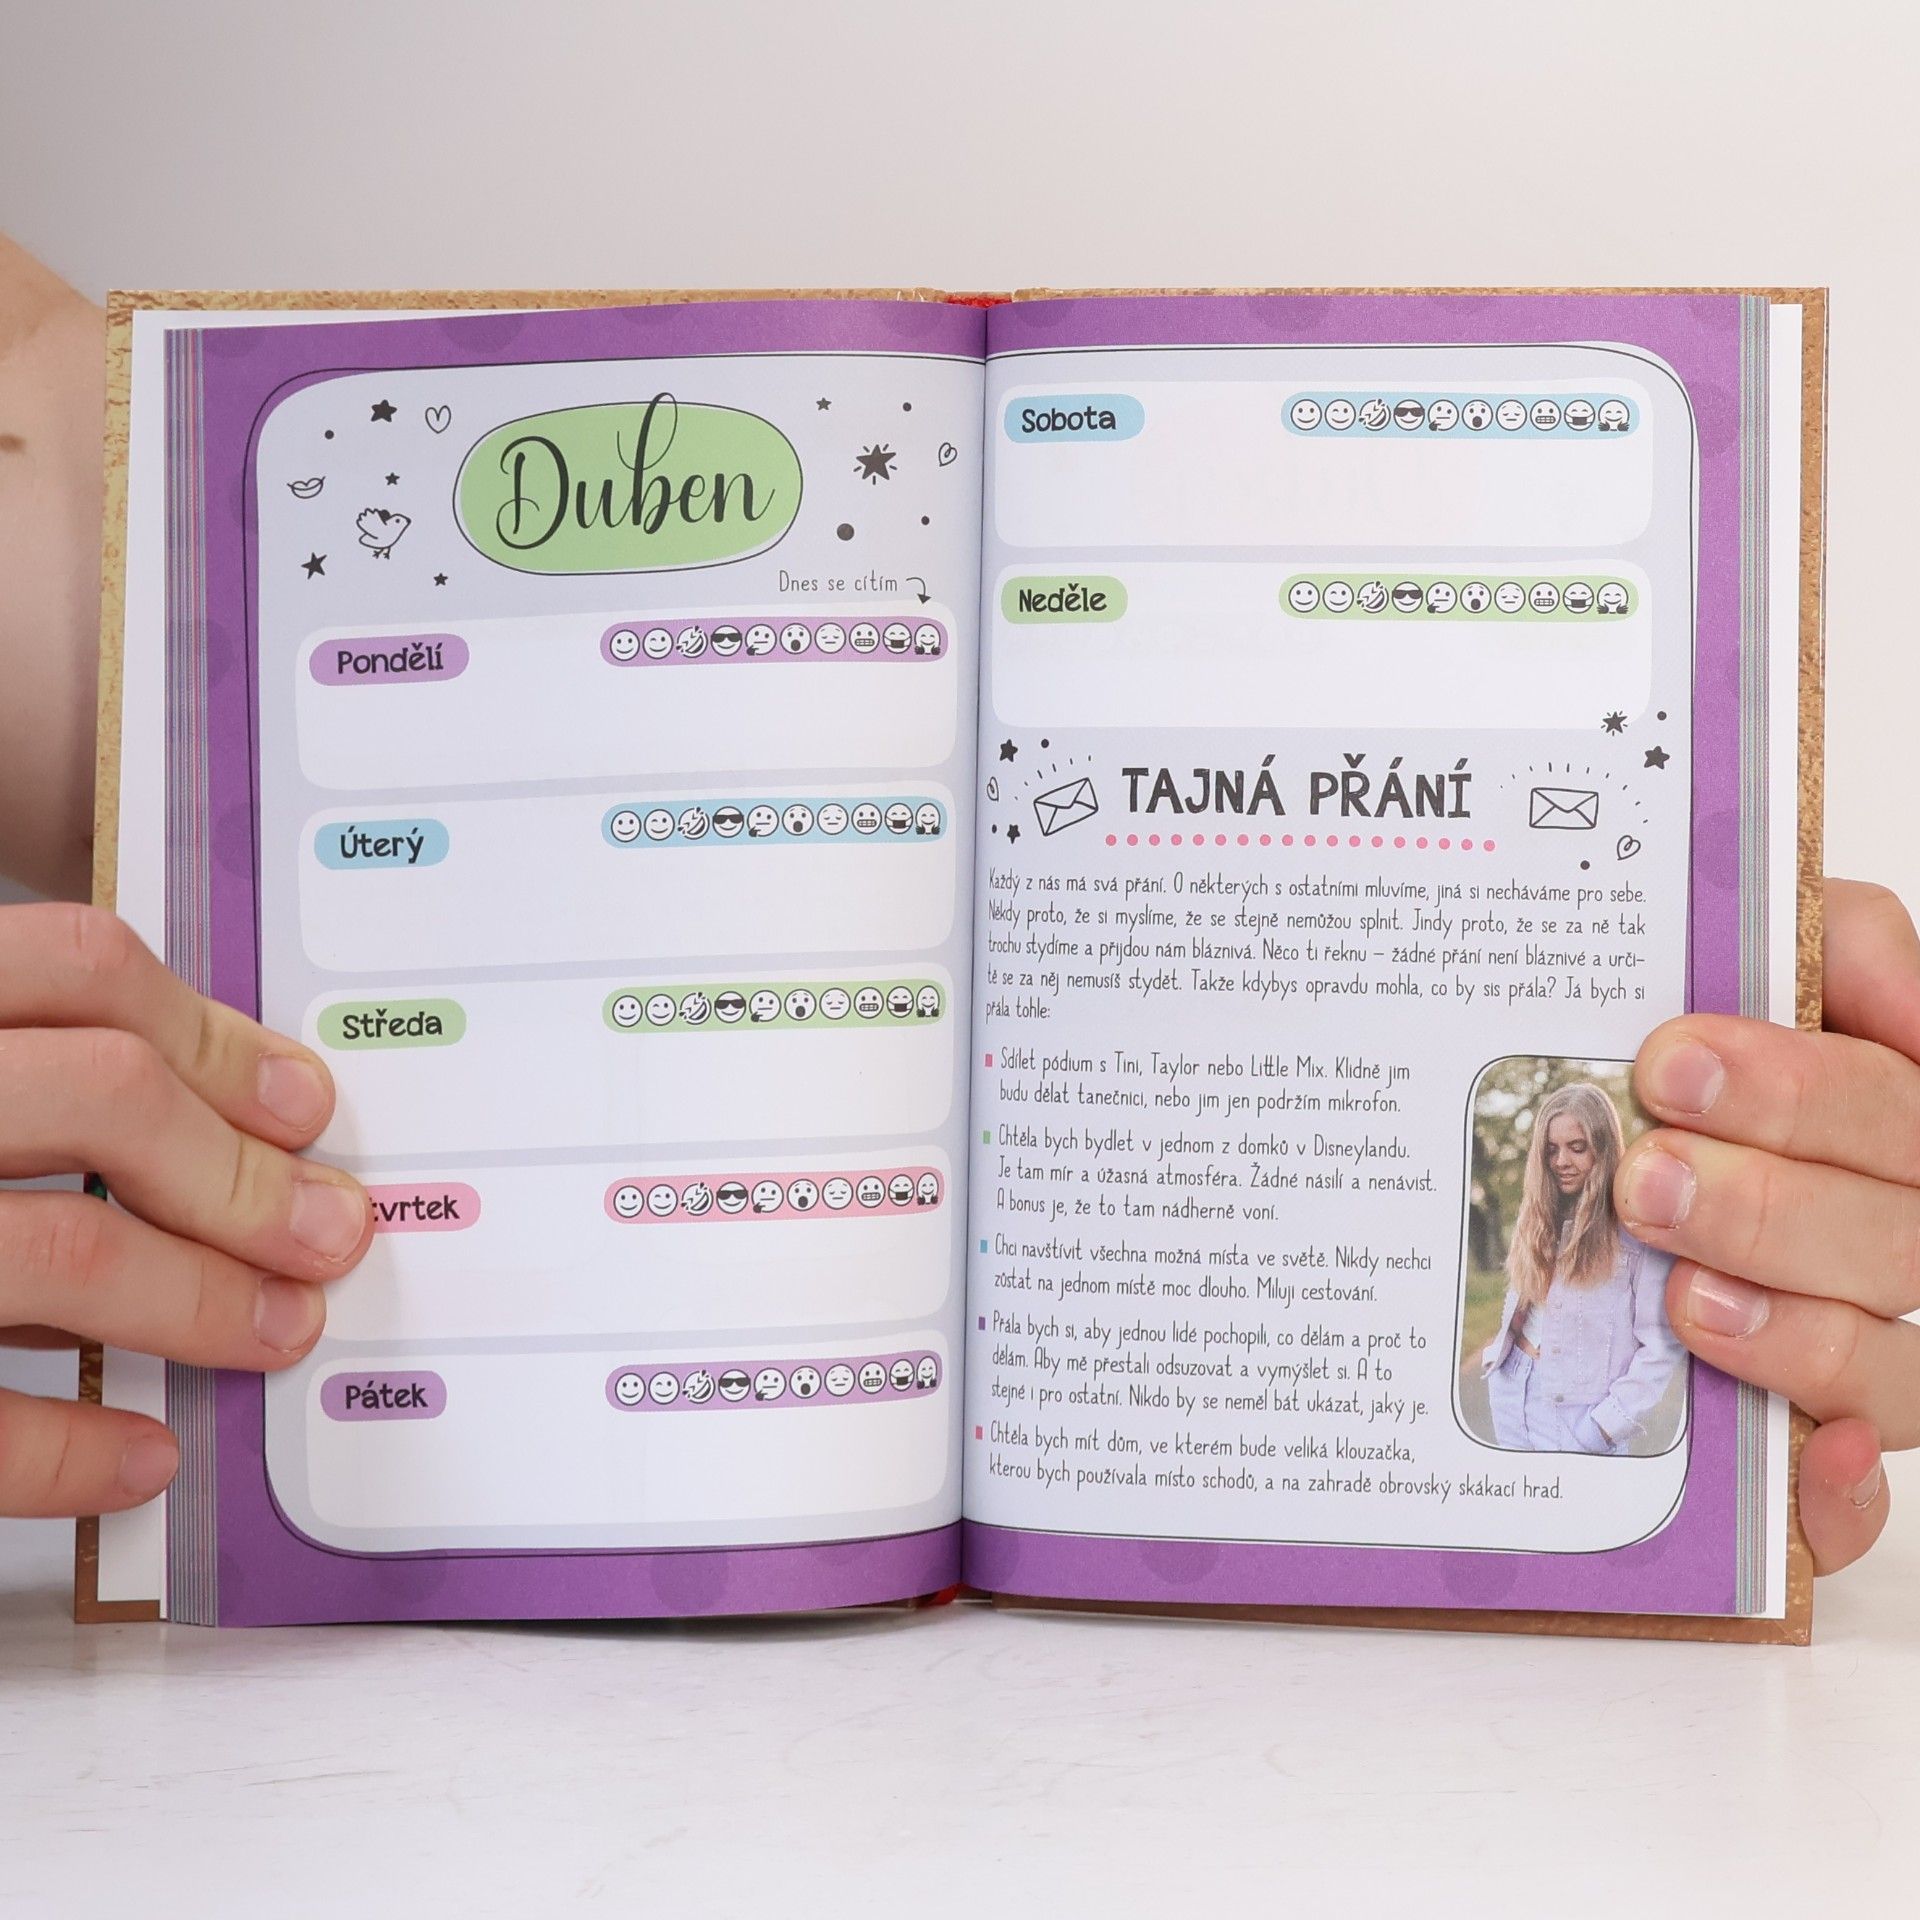 Duben
Dnes se cítím
Pondělí
Úterý
Středa
tvrtek
Pátek
Sobota
Neděle
TAJNÁ PŘÁNÍ
Každý z nás má svá přání. O některých s ostatními mluvíme, jiná si necháváme pro sebe.
Někdy proto, že si myslíme, že se stejně nemůžou splnit. Jindy proto, že se za ně tak
trochu stydíme a přijdou nám bláznivá. Něco ti řeknu – žádné přání není bláznivé a urči-
tě se za něj nemusíš stydět. Takže kdybys opravdu mohla, co by sis přála? Já bych si
přála tohle:
Sdílet pódium s Tini, Taylor nebo Little Mix. Klidně jim
budu dělat tanečnici, nebo jim jen podržím mikrofon.
Chtěla bych bydlet v jednom z domků v Disneylandu.
Je tam mír a úžasná atmosféra. Žádné násilí a nenávist.
A bonus je, že to tam nádherně voní.
Chci navštívit všechna možná místa ve světě. Nikdy nechci
zůstat na jednom místě moc dlouho. Miluji cestování.
Přála bych si, aby jednou lidé pochopili, co dělám a proč to
dělám. Aby mě přestali odsuzovat a vymýšlet si. A to
stejné i pro ostatní. Nikdo by se neměl bát ukázat, jaký je.
Chtěla bych mít dům, ve kterém bude veliká klouzačka,
kterou bych používala místo schodů, a na zahradě obrovský skákací hrad.